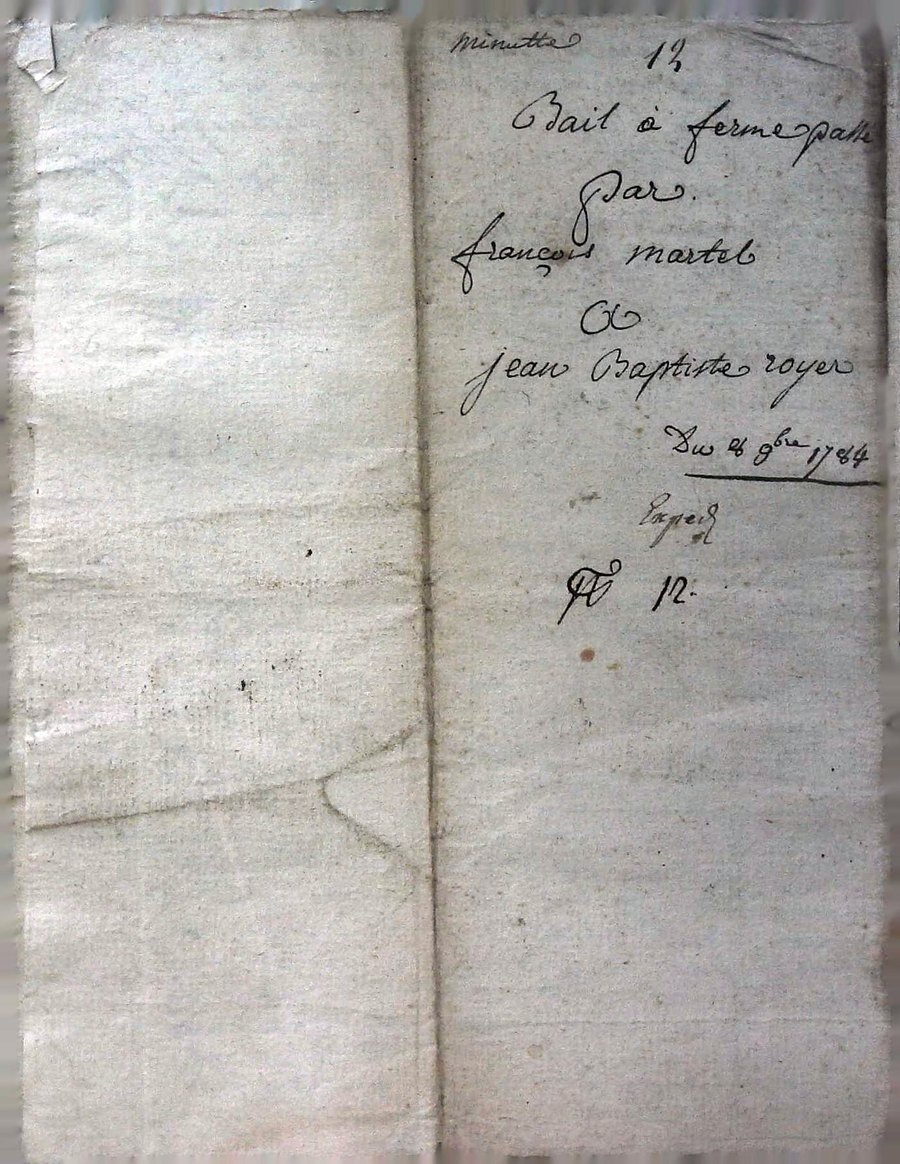 minutte
12
Bail à ferme passé
par
françois martel
a
jean Baptiste royer
Du 8 9bre 1784
Exped
12.